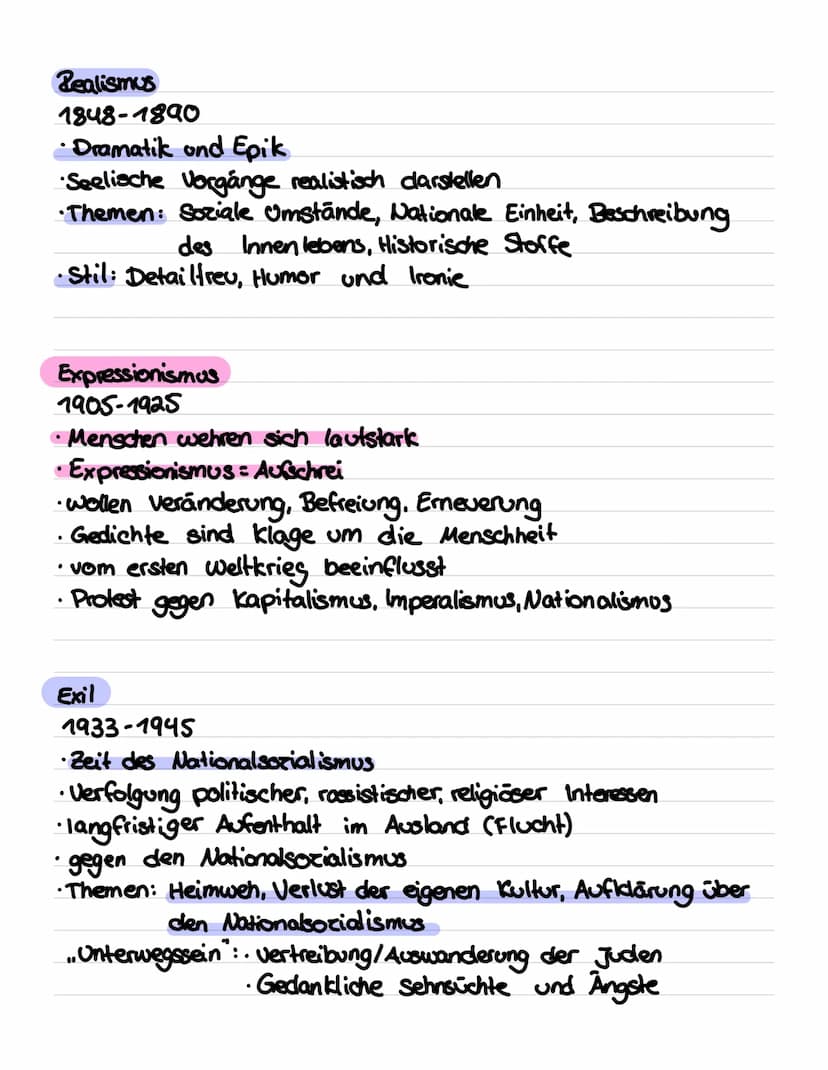 Realismus
1848-1890
· Dramatik und Epik
· Seelische Vorgänge realistisch darstellen
· Themen: Soziale Umstände, Nationale Einheit, Beschreibung
des Innenlebens, Historische Stoffe
· Stil: Detailtreu, Humor und Ironie
Expressionismus
1905-1925
· Menschen wehren sich lautstark
· Expressionismus = Aufschrei
· wollen Veränderung, Befreiung, Erneuerung
· Gedichte sind Klage um die Menschheit
· vom ersten Weltkrieg beeinflusst
· Protest gegen Kapitalismus, Imperalismus, Nationalismus
Exil
1933-1945
· Zeit des Nationalsozialismus
· Verfolgung politischer, rassistischer, religiöser Interessen
· langfristiger Aufenthalt im Ausland (Flucht)
· gegen den Nationalsozialismus
· Themen: Heimweh, Verlust der eigenen Kultur, Aufklärung über
den Nationalsozialismus
„Unterwegssein": · Vertreibung/Auswanderung der Juden
· Gedankliche Sehnsüchte und Ängste